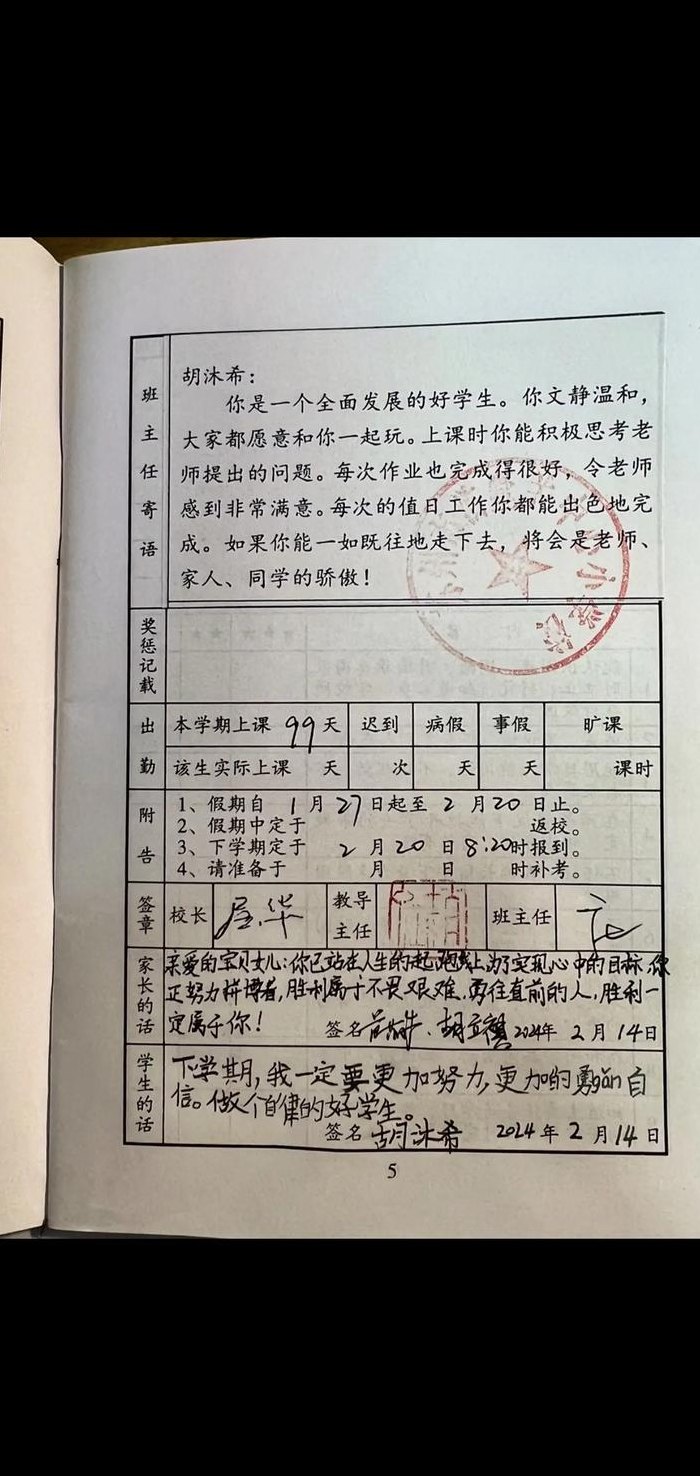 班主任寄语
胡沐希：
你是一个全面发展的好学生。你文静温和，
大家都愿意和你一起玩。上课时你能积极思考老
师提出的问题。每次作业也完成得很好，令老师
感到非常满意。每次的值日工作你都能出色地完
成。如果你能一如既往地走下去，将会是老师、
家人、同学的骄傲！
奖惩记载
出勤
本学期上课 99 天 迟到 病假 事假 旷课
该生实际上课 天 次 天 天 课时
附告
1、假期自 1 月 27 日起至 2 月 20 日止。
2、假期中定于 返校。
3、下学期定于 2 月 20 日 8:20 时报到。
4、请准备于 月 日 时补考。
签章 校长 教导主任 班主任
家长的话
亲爱的宝贝女儿：你已站在人生的起跑线上，为了实现心中的目标，你
正努力拼博着，胜利属于不畏艰难、勇往直前的人，胜利一
定属于你！ 签名 2024年 2 月 14日
学生的话
下学期，我一定要更加努力，更加的勇gǎn自
信。做个自律的好学生。
签名 胡沐希 2024 年 2 月 14 日
5